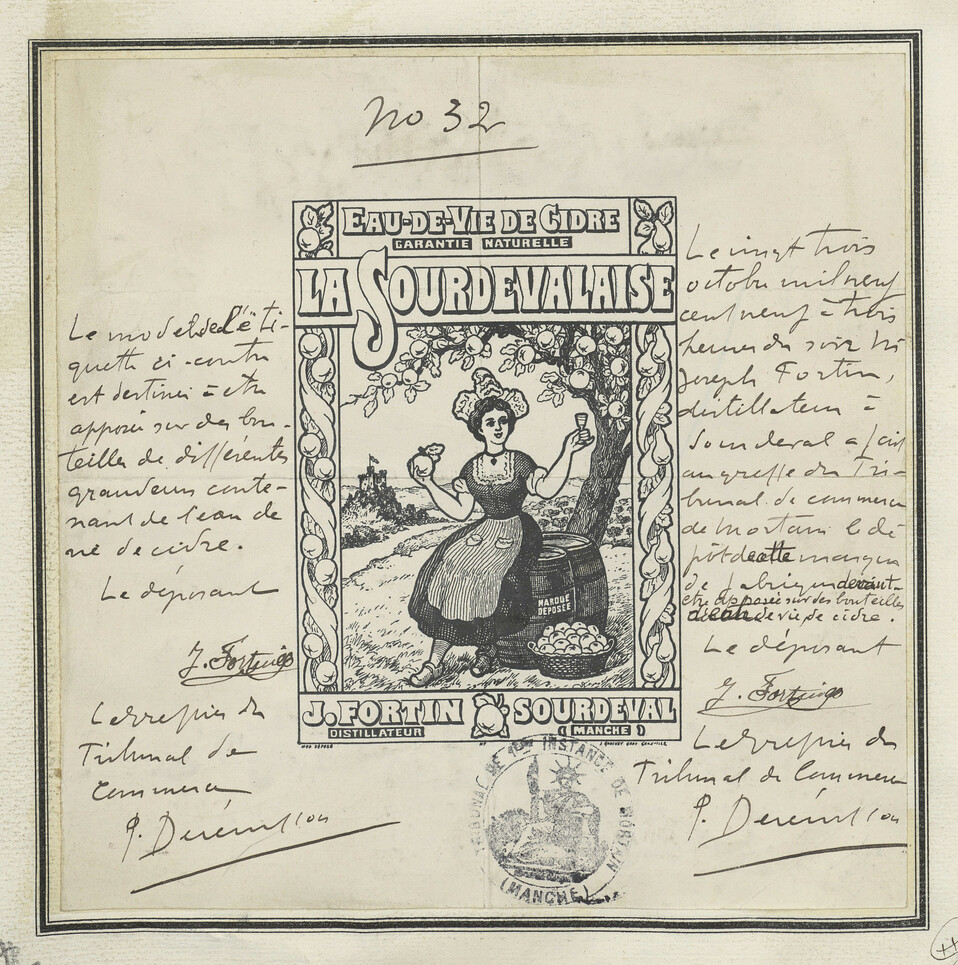 No 32
EAU-DE-VIE DE CIDRE
GARANTIE NATURELLE
LA SOURDEVALAISE
MARQUE
DEPOSÉE
J. FORTIN SOURDEVAL
DISTILLATEUR (MANCHE)
MOD DÉPOSÉ
Le modèle de l'éti-
quette ci-contre
est destinée à être
apposée sur des bou-
teilles de différentes
grandeurs conte-
nant de l'eau de
vie de cidre.
Le déposant
J. Fortin
Le greffier du
Tribunal de
Commerce
Le vingt trois
octobre mil neuf
cent neuf à trois
heures du soir Mr
Joseph Fortin,
distillateur à
Sourdeval a fait
au greffe du Tri-
bunal de commerce
de Mortain le dé
pôt de cette marque
de fabrique devant
être apposée sur des bouteilles
d'eau de vie de cidre.
Le déposant
J. Fortin
Le greffier du
Tribunal de Commerce
TRIBUNAL DE 1ERE INSTANCE DE MORTAIN
(MANCHE)